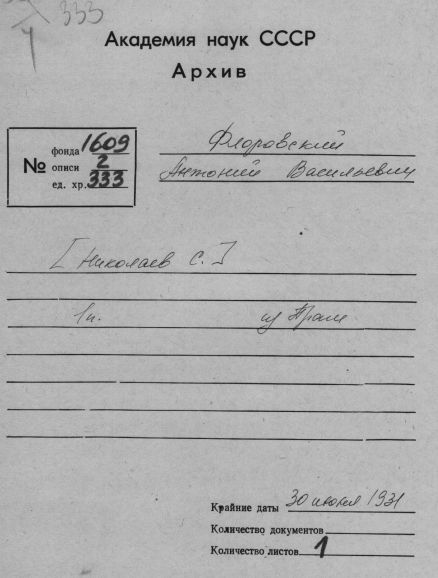 333
Академия наук СССР
Архив
№
фонда 1609
описи 2
ед. хр. 333
Флоровский
Антоний Васильевич
[Николаев С.]
1 п. из Праги
Крайние даты 30 июня 1931
Количество документов
Количество листов 1